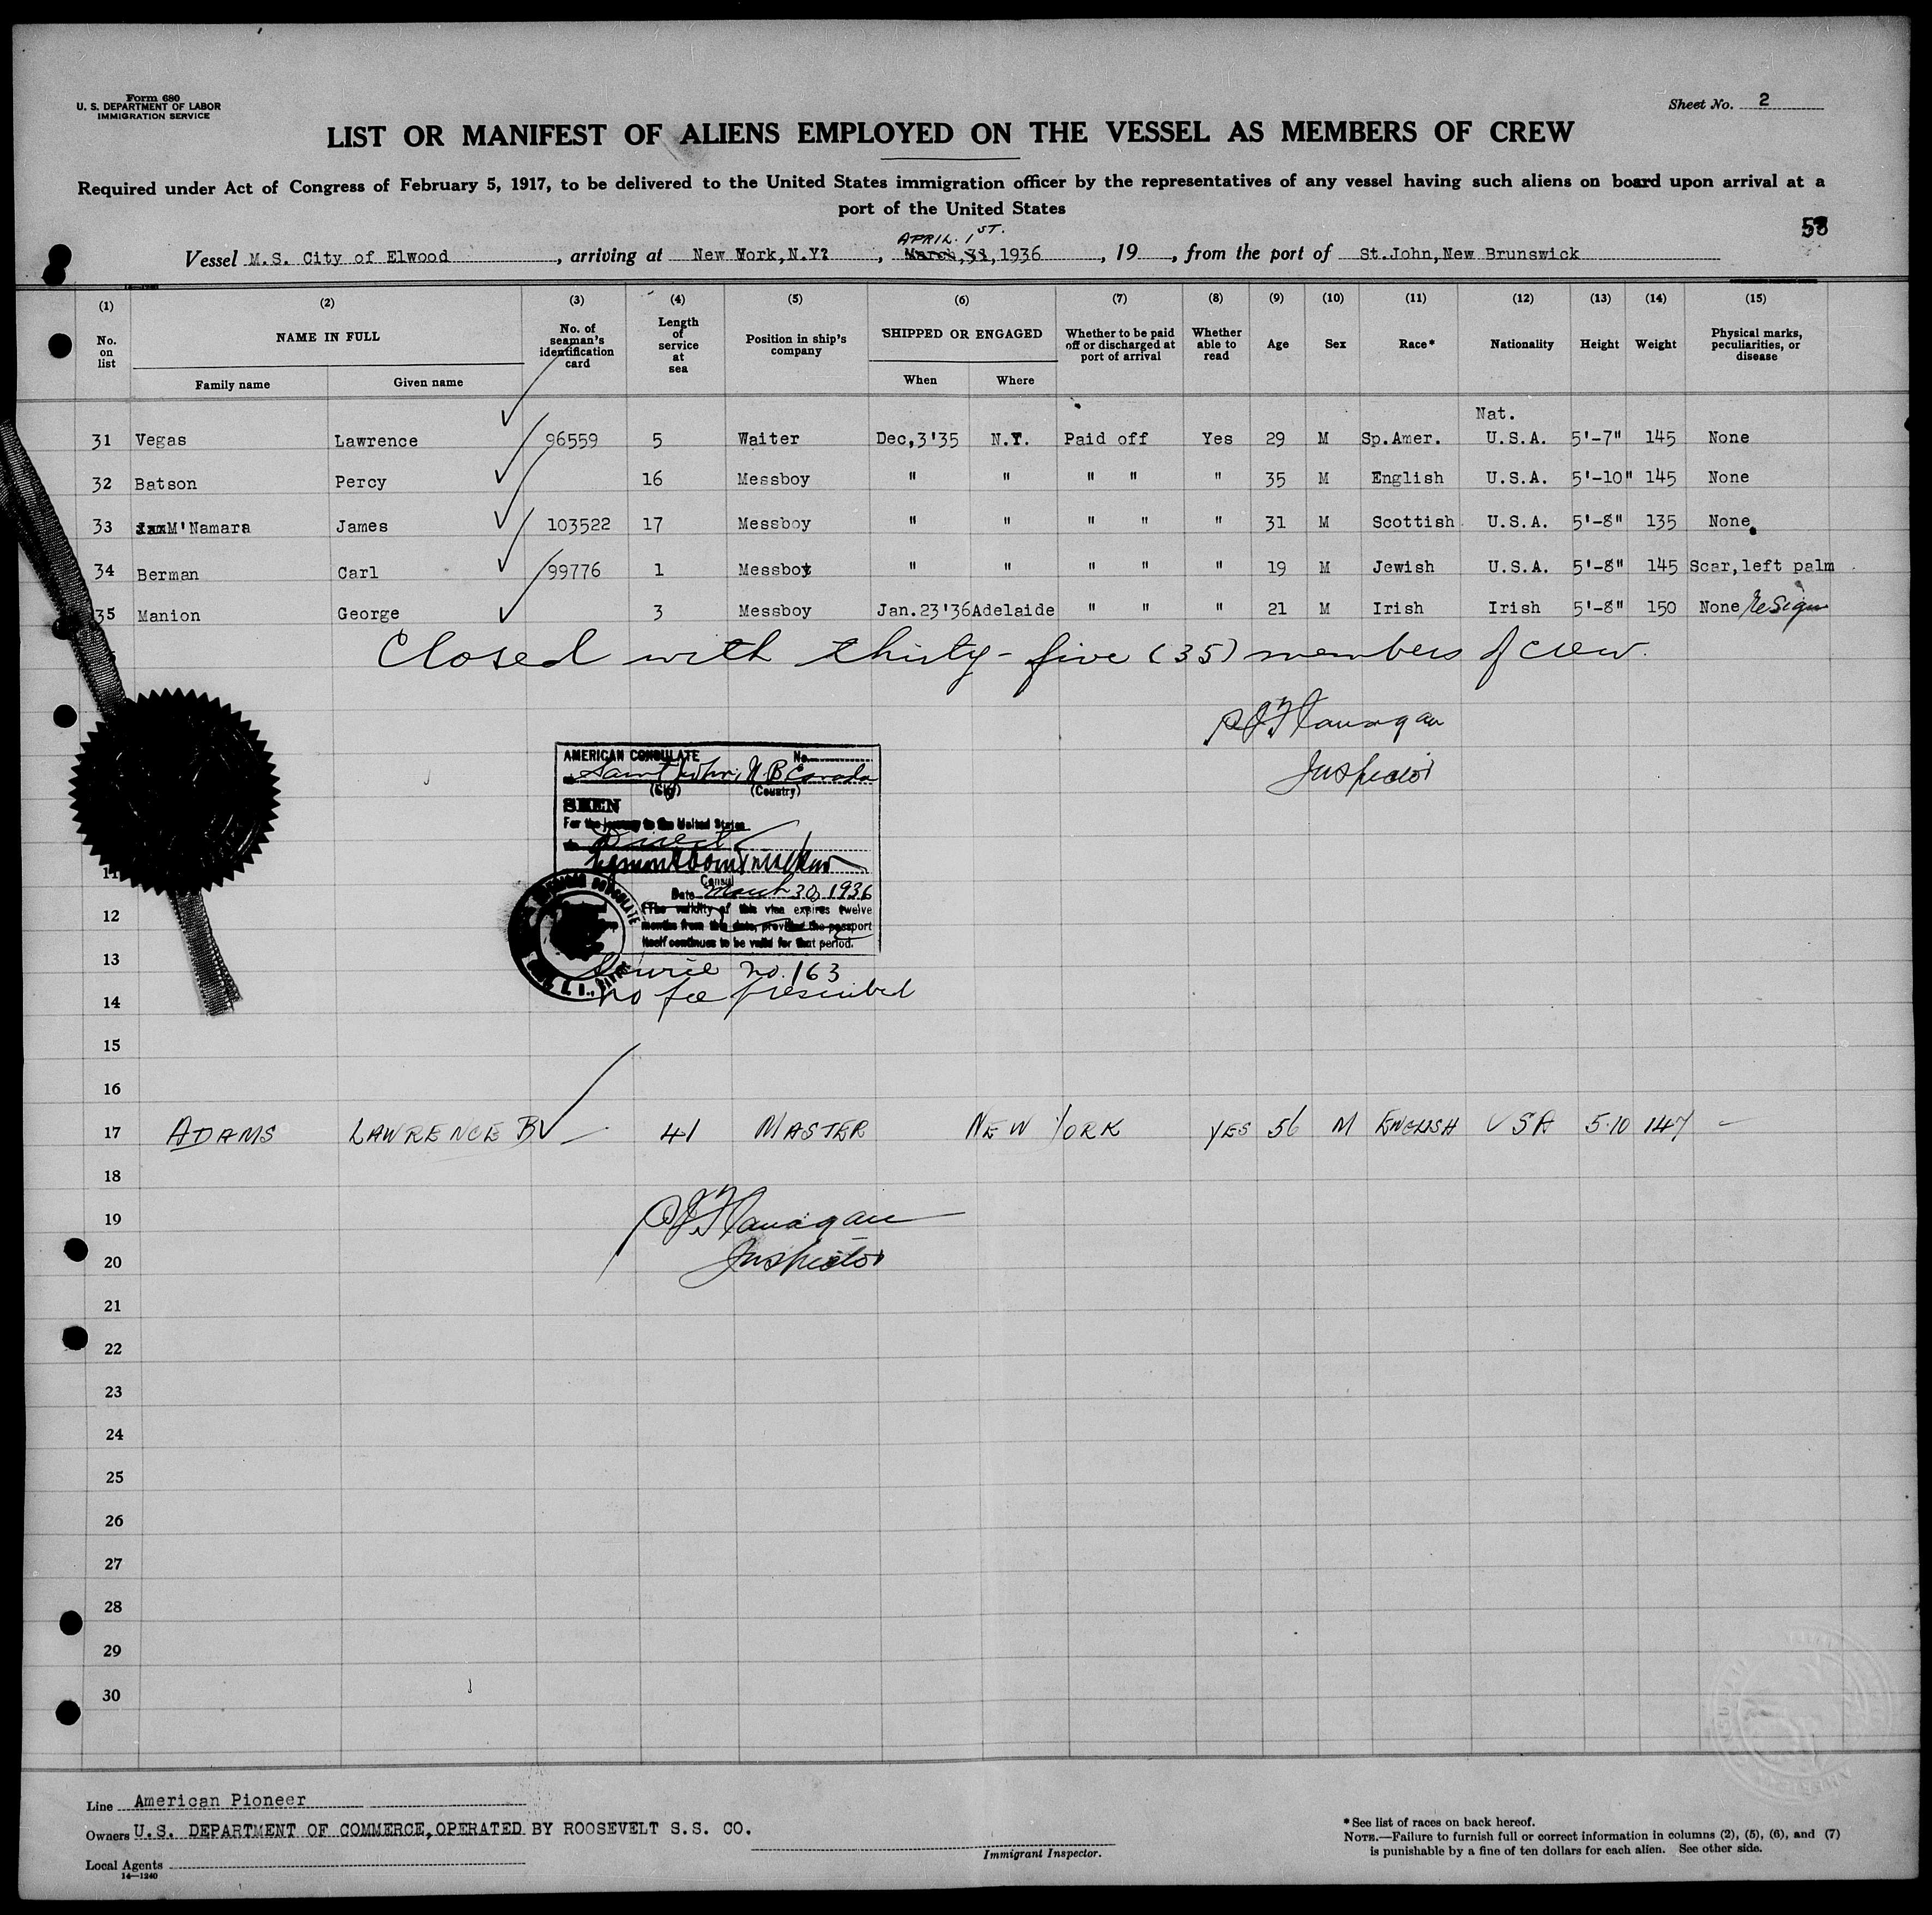 Form 680
U. S. DEPARTMENT OF LABOR
IMMIGRATION SERVICE
Sheet No. 2
LIST OR MANIFEST OF ALIENS EMPLOYED ON THE VESSEL AS MEMBERS OF CREW
Required under Act of Congress of February 5, 1917, to be delivered to the United States immigration officer by the representatives of any vessel having such aliens on board upon arrival at a
port of the United States
APRIL. 1ST.
Vessel M.S. City of Elwood, arriving at New York,N.Y?, March,31,1936, 19, from the port of St.John,New Brunswick
(1) (2) (3) (4) (5) (6) (7) (8) (9) (10) (11) (12) (13) (14) (15)
No. on list NAME IN FULL Family name Given name No. of seaman's identification card Length of service at sea Position in ship's company SHIPPED OR ENGAGED When Where Whether to be paid off or discharged at port of arrival Whether able to read Age Sex Race* Nationality Height Weight Physical marks, peculiarities, or disease
Nat.
31 Vegas Lawrence 96559 5 Waiter Dec,3'35 N.Y. Paid off Yes 29 M Sp.Amer. U.S.A. 5'-7" 145 None
32 Batson Percy 16 Messboy " " " " " 35 M English U.S.A. 5'-10" 145 None
33 M'Namara James 103522 17 Messboy " " " " " 31 M Scottish U.S.A. 5'-8" 135 None
34 Berman Carl 99776 1 Messboy " " " " " 19 M Jewish U.S.A. 5'-8" 145 Scar,left palm
35 Manion George 3 Messboy Jan.23'36 Adelaide " " " 21 M Irish Irish 5'-8" 150 None Resign
Closed with thirty-five (35) members of crew.
Flanagan
Inspector
AMERICAN CONSULATE No.
at Saint John, N B Canada
(City) (Country)
SEEN
For the journey to the United States
Direct
Consul
Date March 30, 1936
(The validity of this visa expires twelve
months from this date, provided the passport
itself continues to be valid for that period.
11
12
13
no. 163
no fee prescribed
14
15
16
17 ADAMS LAWRENCE B 41 MASTER NEW YORK YES 56 M ENGLISH USA 5.10 147 —
18
19
Flanagan
Inspector
20
21
22
23
24
25
26
27
28
29
30
Line American Pioneer
Owners U.S. DEPARTMENT OF COMMERCE,OPERATED BY ROOSEVELT S.S. CO.
Local Agents
14—1240
Immigrant Inspector.
*See list of races on back hereof.
NOTE.—Failure to furnish full or correct information in columns (2), (5), (6), and (7)
is punishable by a fine of ten dollars for each alien. See other side.